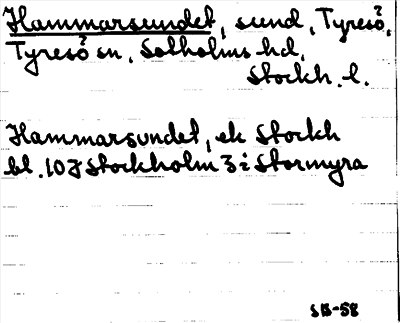 Hammarsundet, sund, Tyresö,
Tyresö sn, Sotholms hd,
Stockh. l.
Hammarsundet, ek Stockh
bl. 10J Stockholm 3 i Stormyra
SB-58